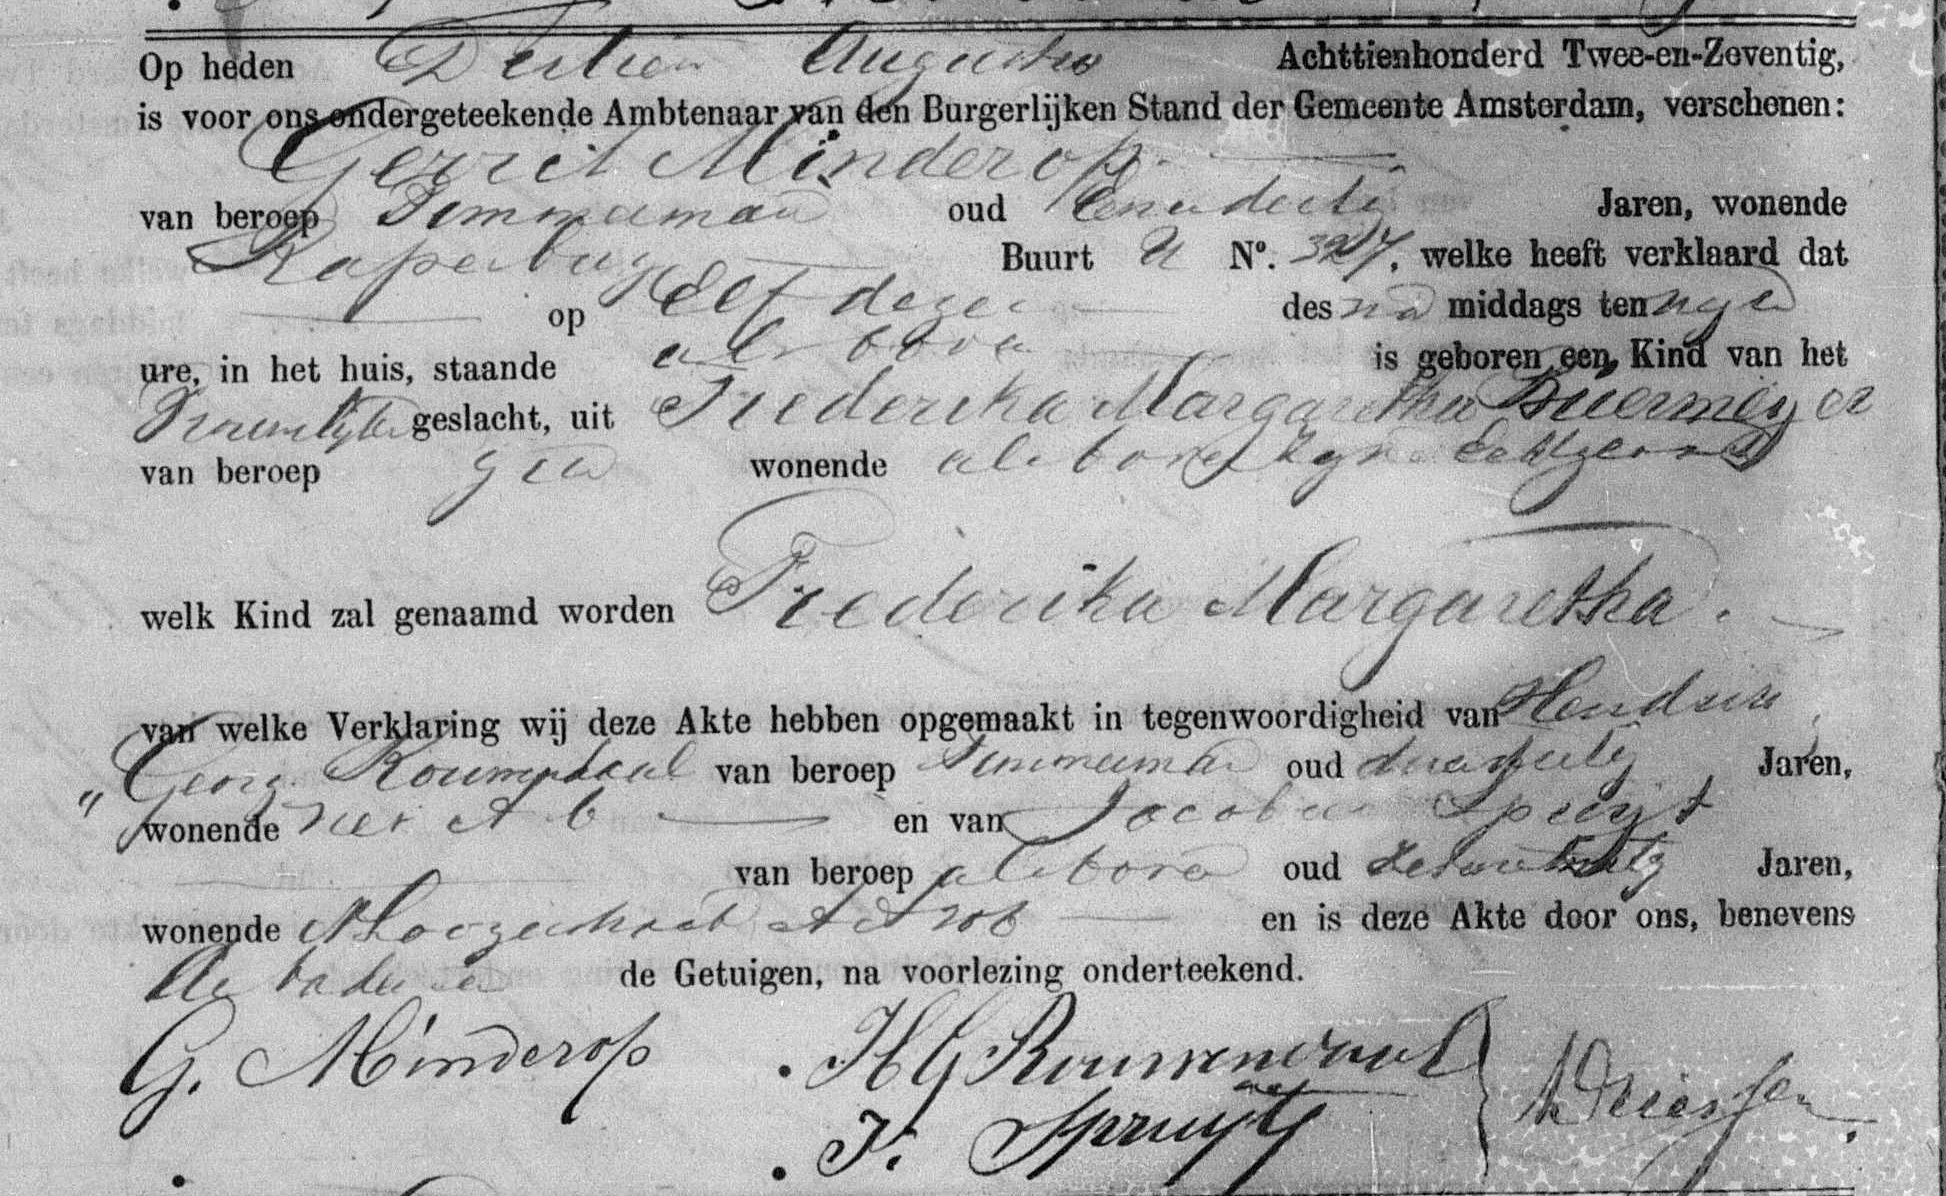 Op heden Dertien Augustus Achttienhonderd Twee-en-Zeventig,
is voor ons ondergeteekende Ambtenaar van den Burgerlijken Stand der Gemeente Amsterdam, verschenen:
Gerrit Minderop.
van beroep Timmerman oud Eenendertig Jaren, wonende
Rapenburg Buurt U No. 327, welke heeft verklaard dat
op Elf dezer des na middags ten negen
ure, in het huis, staande als boven is geboren een Kind van het
Vrouwelijke geslacht, uit Frederika Margaretha Buermeyer
van beroep geen wonende als boven zyne Echtgenoot
welk Kind zal genaamd worden Frederika Margaretha.
van welke Verklaring wij deze Akte hebben opgemaakt in tegenwoordigheid van Hendrik
" Georg van beroep Timmerman oud Jaren,
wonende en van Jacobus Spruijt
van beroep als boven oud Jaren,
wonende en is deze Akte door ons, benevens
de Vader en de Getuigen, na voorlezing onderteekend.
G. Minderop HG
J. Spruyt